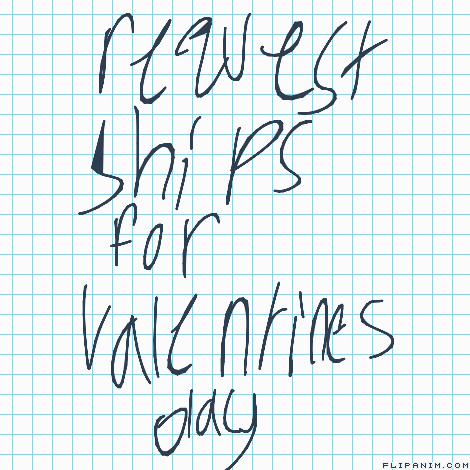 request
ships
for
valentines
day
FLIPANIM.COM